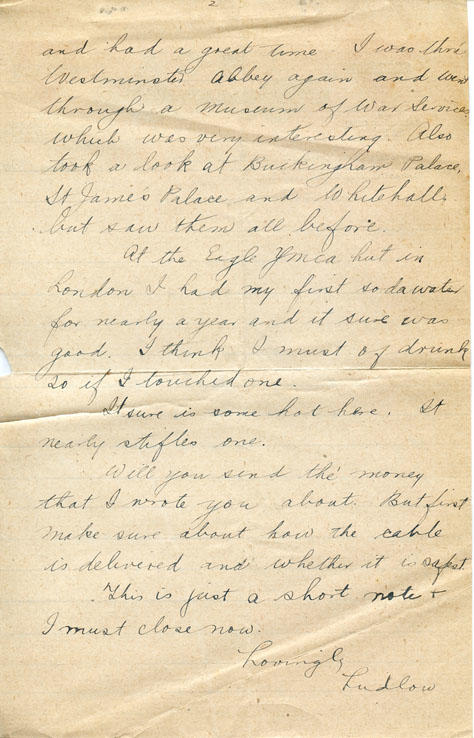 2
and had a great time. I was thru
Westminster Abbey again and went
through a museum of War Services
which was very interesting. Also
took a look at Buckingham Palace,
St James's Palace and Whitehall
but saw them all before.
At the Eagle Ymca hut in
London I had my first soda water
for nearly a year and it sure was
good. I think I must of drunk
so if I touched one.
It sure is some hot here. It
nearly stifles one.
Will you send the money
that I wrote you about. But first
make sure about how the cable
is delivered and whether it is safest.
This is just a short note +
I must close now.
Lovingly
Ludlow